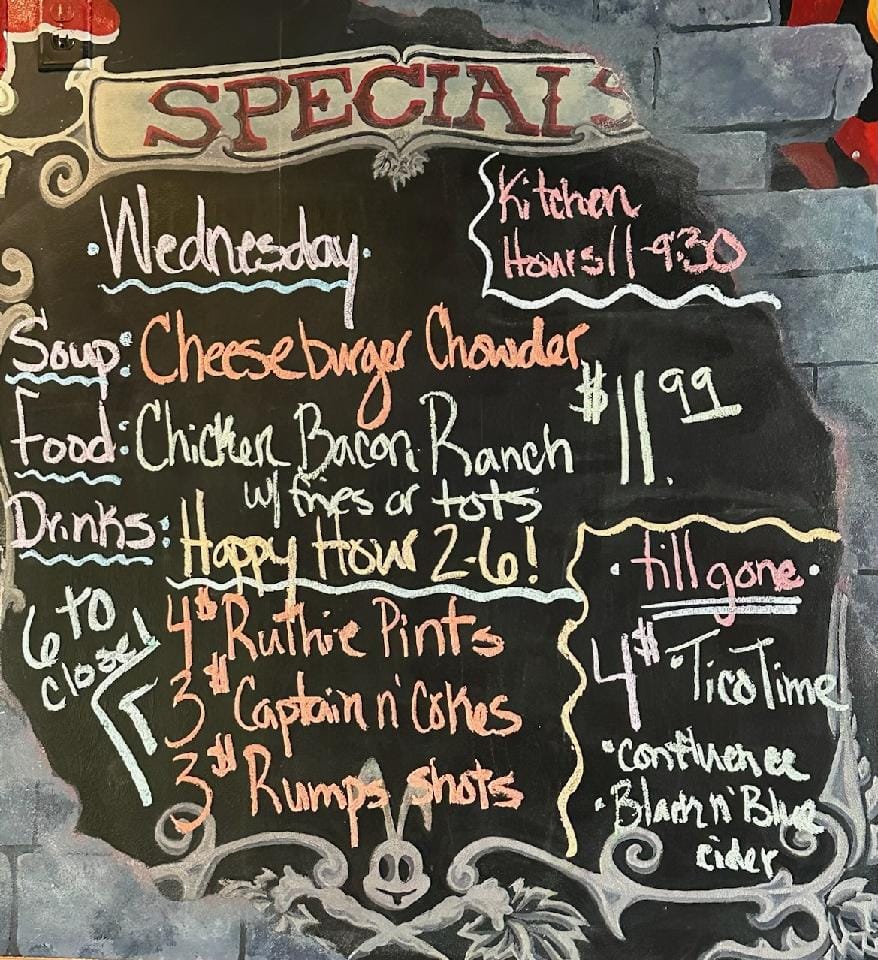 SPECIALS
Kitchen
Hours 11-9:30
Wednesday
Soup: Cheeseburger Chowder
$11.99
Food: Chicken Bacon Ranch
w/ fries or tots
Drinks: Happy Hour 2-6!
6 to
close!
4$ Ruthie Pints
3$ Captain n' Cokes
3$ Rumps shots
till gone
4$ • Tico Time
• Confluence
• Black n' Blue
cider